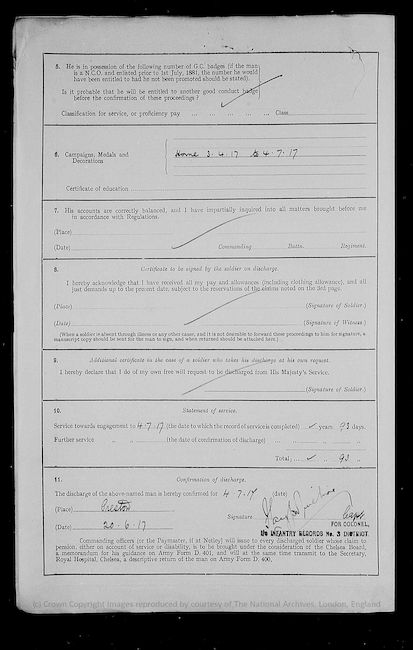 5. He is in possession of the following number of G.C. badges (if the man
is a N.C.O. and enlisted prior to 1st July, 1881, the number he would
have been entitled to had he not been promoted should be stated).
Is it probable that he will be entitled to another good conduct badge
before the confirmation of these proceedings?
Classification for service, or proficiency pay ... ... ... ... Class
6. Campaigns, Medals and
Decorations
Home 3.4.17 to 4.7.17
Certificate of education
7. His accounts are correctly balanced, and I have impartially inquired into all matters brought before me
in accordance with Regulations.
(Place)
(Date) Commanding Battn. Regiment.
8. Certificate to be signed by the soldier on discharge.
I hereby acknowledge that I have received all my pay and allowances (including clothing allowance), and all
just demands up to the present date, subject to the reservations of the claims noted on the 3rd page.
(Place) (Signature of Soldier.)
(Date) (Signature of Witness.)
(When a soldier is absent through illness or any other cause, and it is not desirable to forward these proceedings to him for signature, a
manuscript copy should be sent for the man to sign, and when returned should be attached here.)
9. Additional certificate in the case of a soldier who takes his discharge at his own request.
I hereby declare that I do of my own free will request to be discharged from His Majesty's Service.
(Signature of Soldier.)
10. Statement of service.
Service towards engagement to 4.7.17 (the date to which the record of service is completed) years 93 days.
Further service „ „ (the date of confirmation of discharge) ... „ „
Total, ... „ 93 „
11. Confirmation of discharge.
The discharge of the above-named man is hereby confirmed for 4.7.17 (date)
(Place) Preston
Signature Capt.
(Date) 20.6.17 FOR COLONEL,
I/c INFANTRY RECORDS No. 3 DISTRICT.
Commanding officers (or the Paymaster, if at Netley) will issue to every discharged soldier whose claim to
pension, either on account of service or disability, is to be brought under the consideration of the Chelsea Board,
a memorandum for his guidance on Army Form D. 401; and will at the same time transmit to the Secretary,
Royal Hospital, Chelsea, a descriptive return of the man on Army Form D. 400.
(c) Crown Copyright Images reproduced by courtesy of The National Archives, London, England